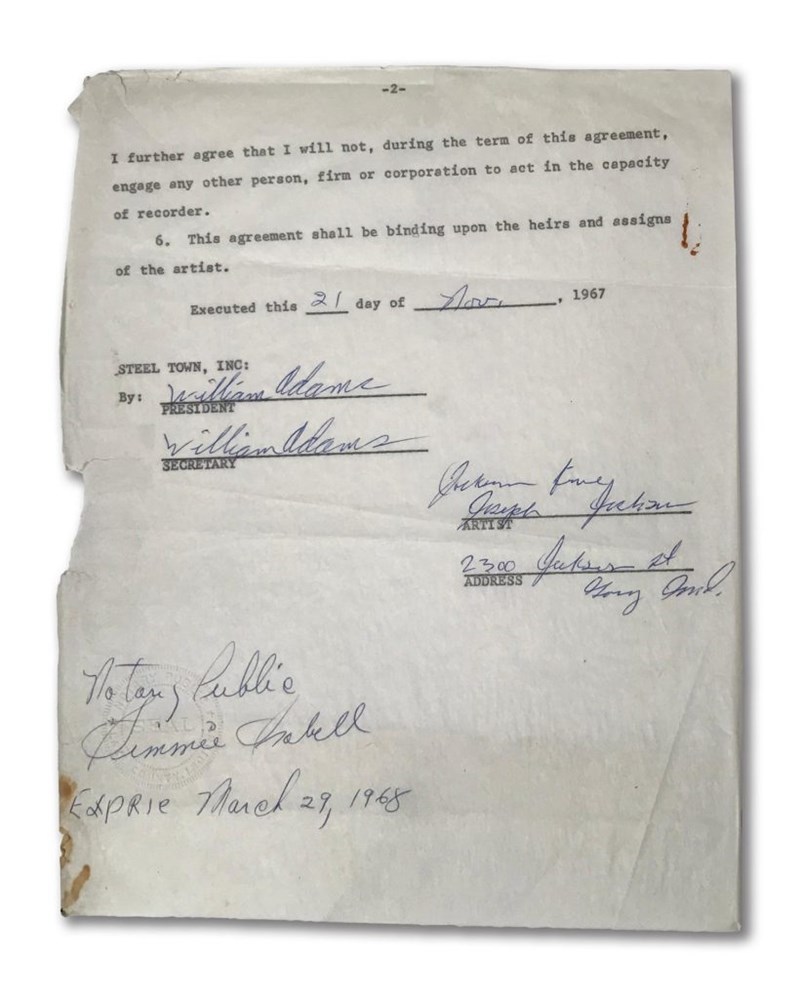 -2-
I further agree that I will not, during the term of this agreement,
engage any other person, firm or corporation to act in the capacity
of recorder.
6. This agreement shall be binding upon the heirs and assigns
of the artist.
Executed this 21 day of Nov., 1967
STEEL TOWN, INC:
By: William Adams
PRESIDENT
William Adams
SECRETARY
Jackson Five
Joseph Jackson
ARTIST
2300 Jackson St
ADDRESS
Gary Ind.
Notary Public
SEAL
Jimmie Isabell
EXPRIE March 29, 1968